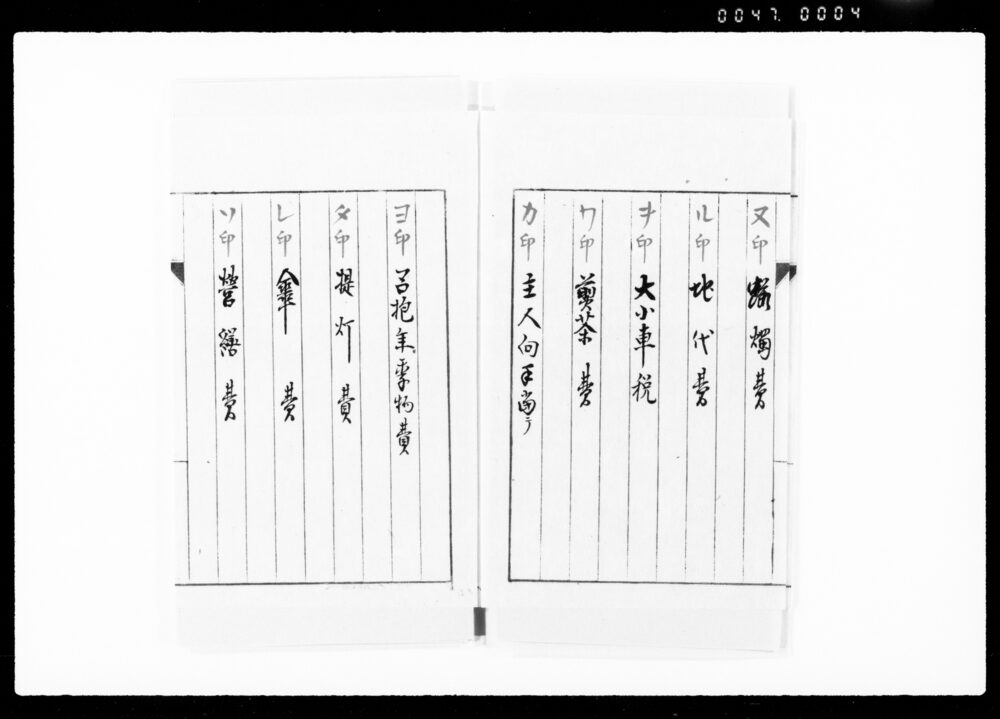 0047. 0004
ヌ印 蝋燭費
ル印 地代費
ヲ印 大小車税
ワ印 煎茶費
カ印 主人向手当
ヨ印 召抱年季物費
タ印 提灯費
レ印 傘費
ソ印 營繕費